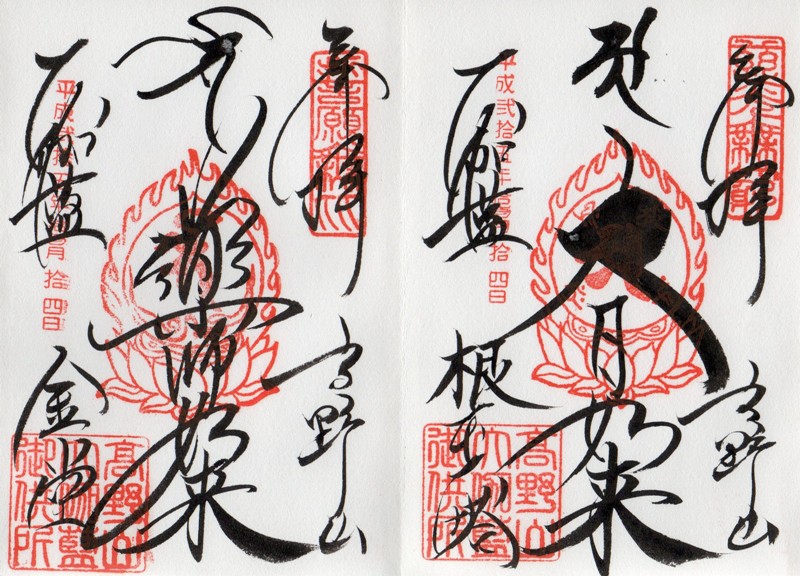 奉拝
高野山
大日如来
平成弐拾五年
拾四日
大伽藍
根本大塔
高野山
大伽藍
御供所
奉拝
高野山
薬師如来
平成弐拾五年
月拾四日
大伽藍
金堂
高野山
大伽藍
御供所